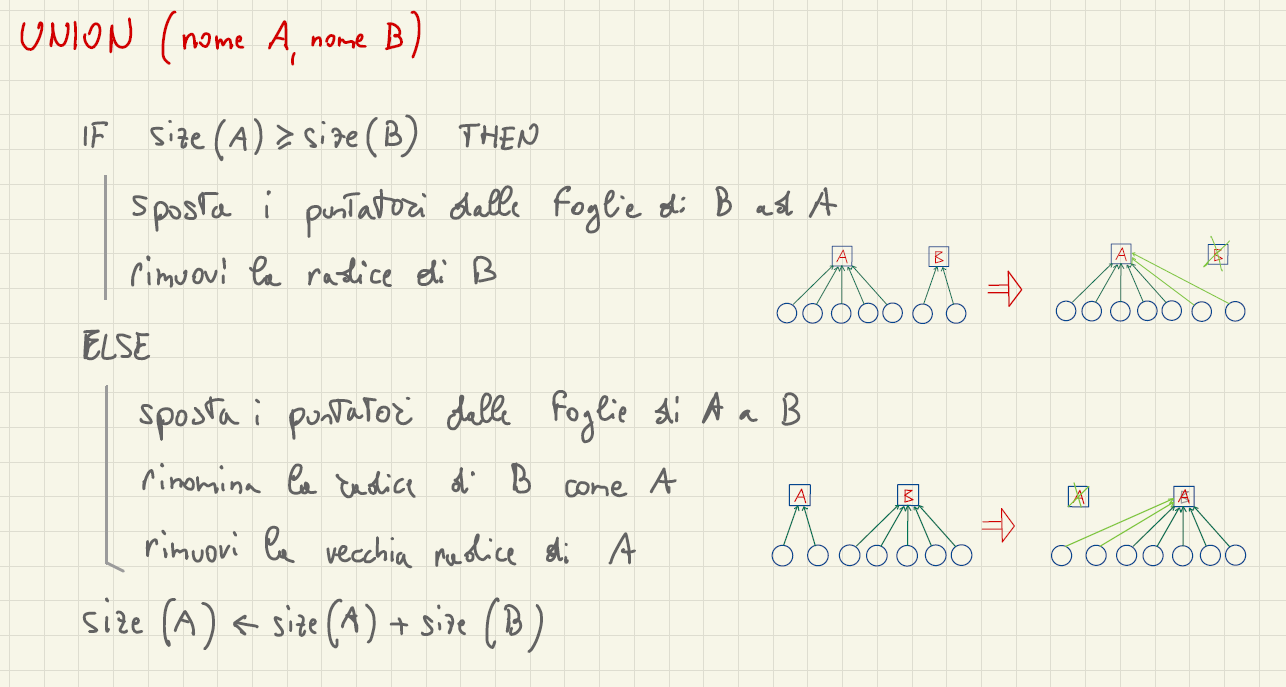 UNION (nome A, nome B)
IF size(A) ≥ size(B) THEN
sposta i puntatori dalle foglie di B ad A
rimuovi la radice di B
A B A B
ELSE
sposta i puntatori dalle foglie di A a B
rinomina la radice di B come A
A B A A
rimuovi la vecchia radice di A
size (A) ← size(A) + size (B)